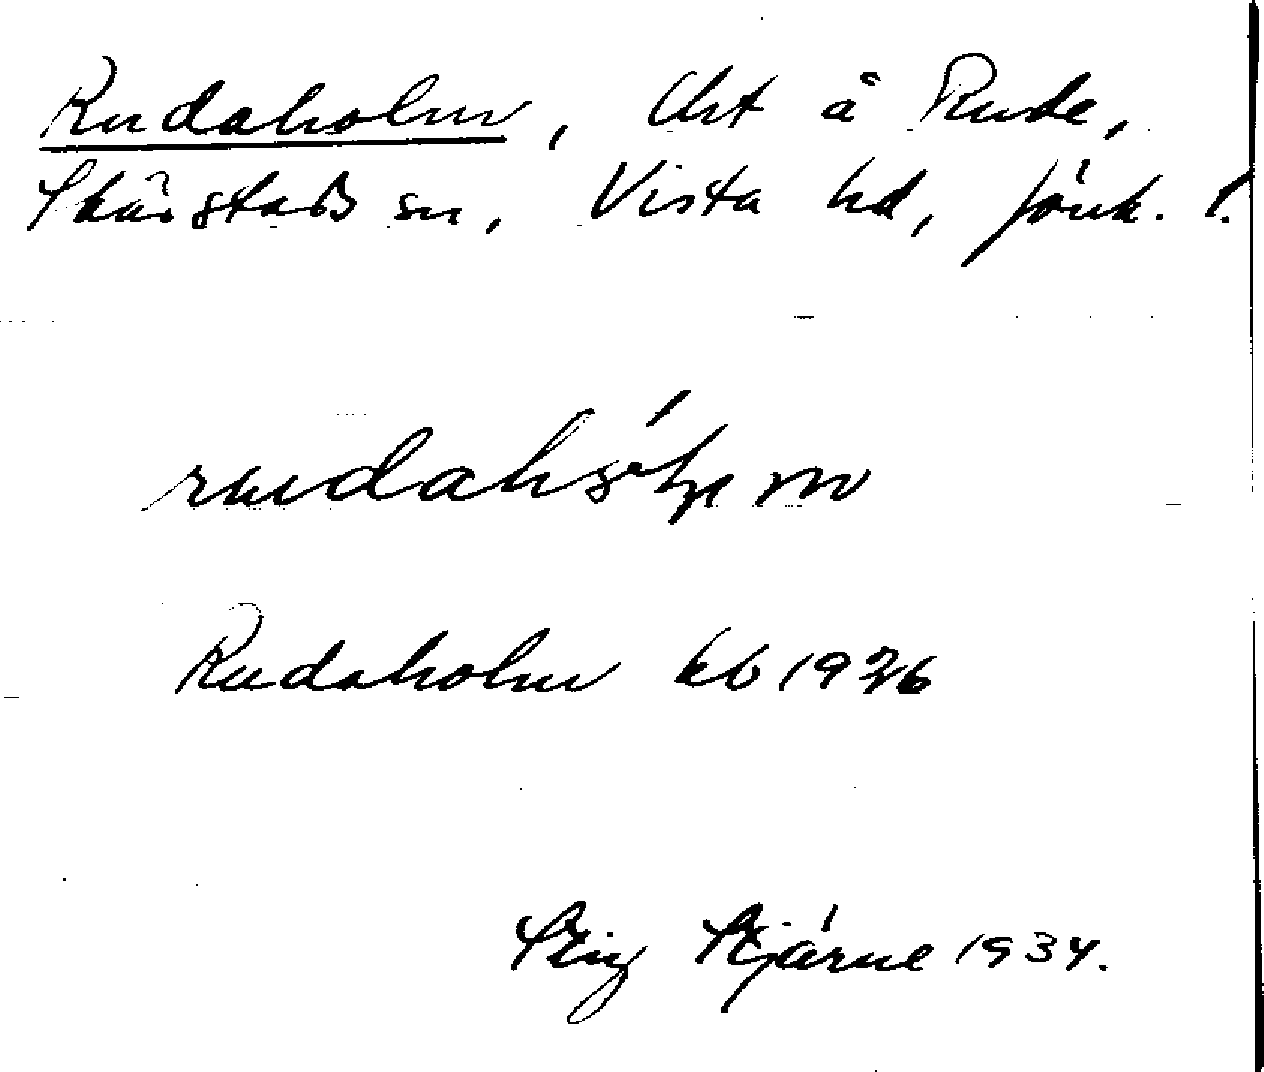 Rudaholm, lht å Rude,
Skärstads sn, Vista hd, Jönk. l.
Rudaholm kb 1926
Stig Stjärne 1934.